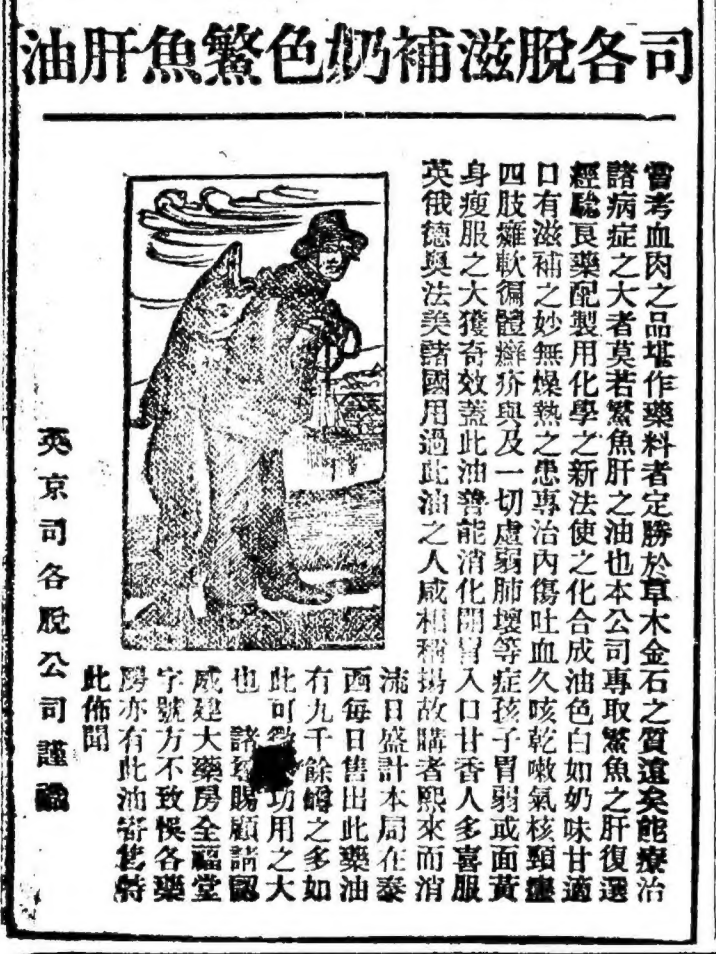 司各脫滋補奶色鱉魚肝油
嘗考血肉之品堪作藥料者定勝於草木金石之質遠矣能療治
諸病症之大者莫若鱉魚肝之油也本公司專取鱉魚之肝復選
經驗良藥配製用化學之新法使之化合成油色白如奶味甘適
口有滋補之妙無燥熱之患專治內傷吐血久咳乾嗽氣核頸癧
四肢癱軟徧體癬疥與及一切虛弱肺壞等症孩子胃弱或面黃
身瘦服之大獲奇效蓋此油善能消化開胃入口甘香人多喜服
英俄德奧法美諸國用過此油之人咸相稱揚故購者熙來而消
流日盛計本局在泰
西每日售出此藥油
有九千餘罇之多如
此可徵功用之大
也 諸尊賜顧請認
威建大藥房全福堂
字號方不致悞各藥
房亦有此油寄售特
此佈聞
英京司各脫公司謹識